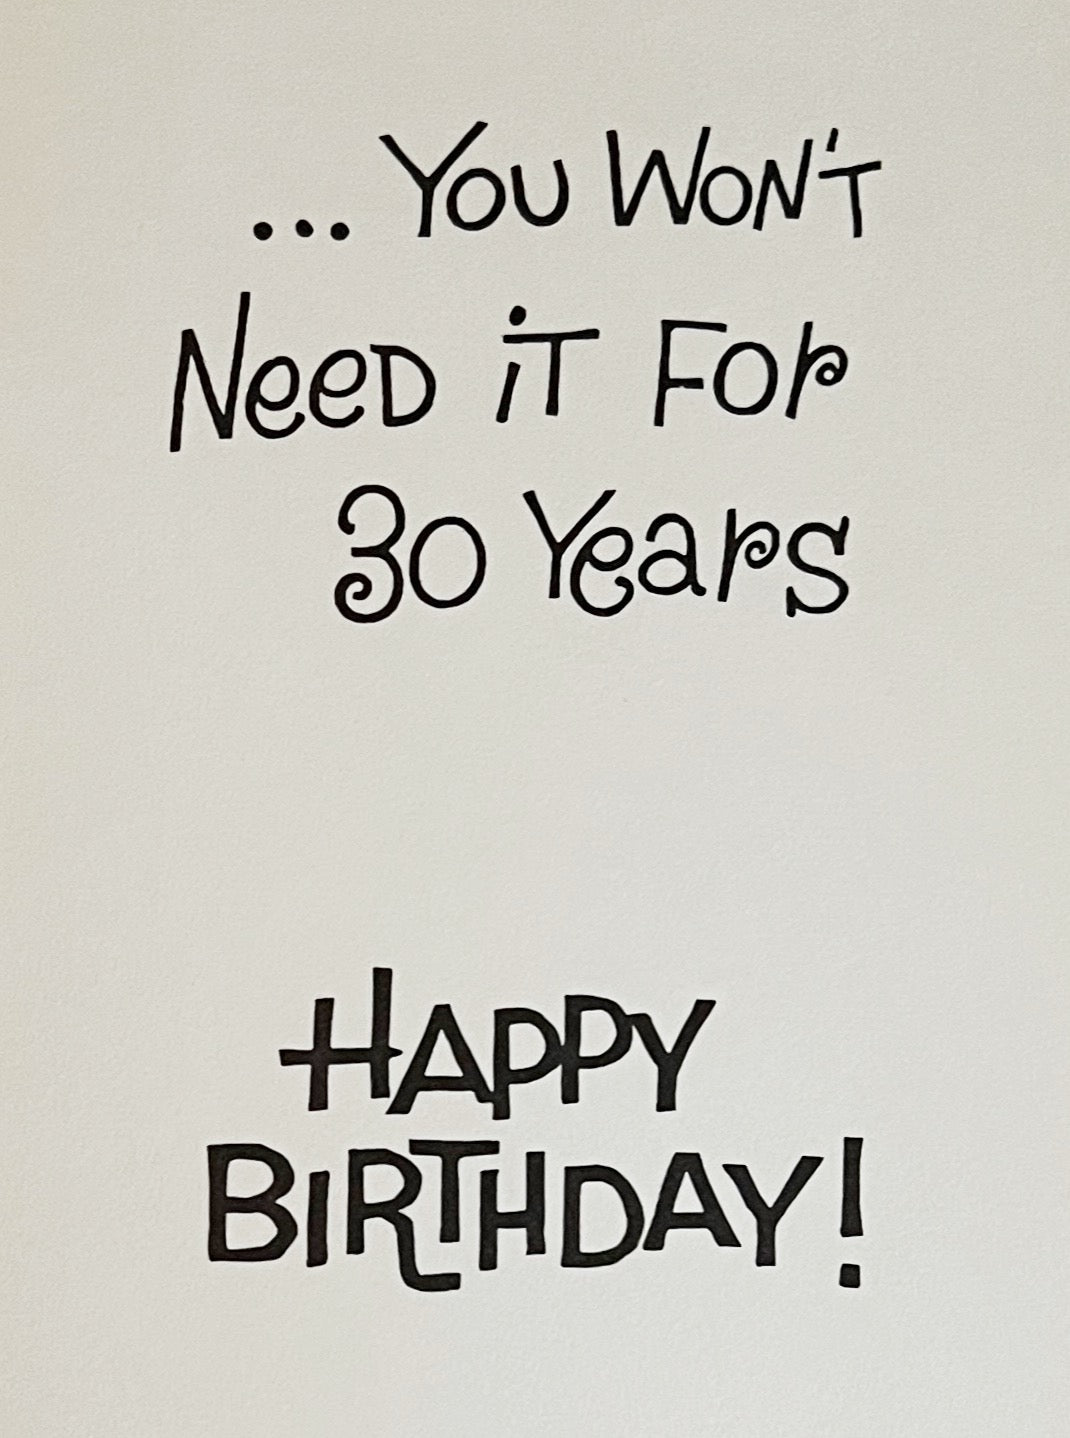 ... You Won't
Need it For
30 Years
Happy
Birthday!